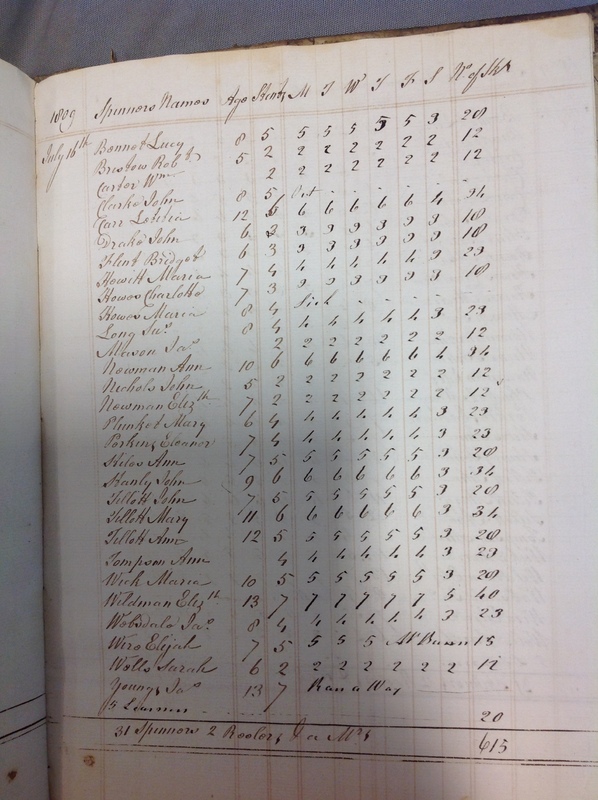 1809 Spinners Names Age Stint M T W T F S No of Sks
July 15th Bonnet Lucy 8 5 5 5 5 5 5 3 28
Bristow Robt 5 2 2 2 2 2 2 2 12
Carter Wm 2 2 2 2 2 2 2 12
Clarke John 8 5
Carr Letitia 12 6 6 6 6 6 6 4 34
Drake John 6 3 3 3 3 3 3 3 18
Flint Bridget 6 3 3 3 3 3 3 3 18
Howitt Maria 7 4 4 4 4 4 4 3 23
Howes Charlotte 7 3 3 3 3 3 3 3 18
Howes Maria 8 4 Sick
Long Jas 8 4 4 4 4 4 4 3 23
Mason Jas 2 2 2 2 2 2 2 12
Newman Ann 10 6 6 6 6 6 6 4 34
Nichols John 5 2 2 2 2 2 2 2 12
Newman Elizth 7 2 2 2 2 2 2 2 12
Plunket Mary 6 4 4 4 4 4 4 3 23
Perkins Eleanor 7 4 4 4 4 4 4 3 23
Ann 7 5 5 5 5 5 5 3 28
John 9 6 6 6 6 6 6 3 34
Tillott John 7 5 5 5 5 5 5 3 28
Tillott Mary 11 6 6 6 6 6 6 3 34
Tillott Ann 12 5 5 5 5 5 5 3 28
Tompson Ann 4 4 4 4 4 4 3 23
Wick Maria 10 5 5 5 5 5 5 3 28
Wildman Elizth 13 7 7 7 7 7 7 5 40
Websdale Jas 8 4 4 4 4 4 4 3 23
Elijah 7 5 5 5 5 15
Wells Sarah 6 2 2 2 2 2 2 2 12
Youngs Jas 13 7 Ran a Way
5 Learners 20
31 Spinners 2 Reelers 615